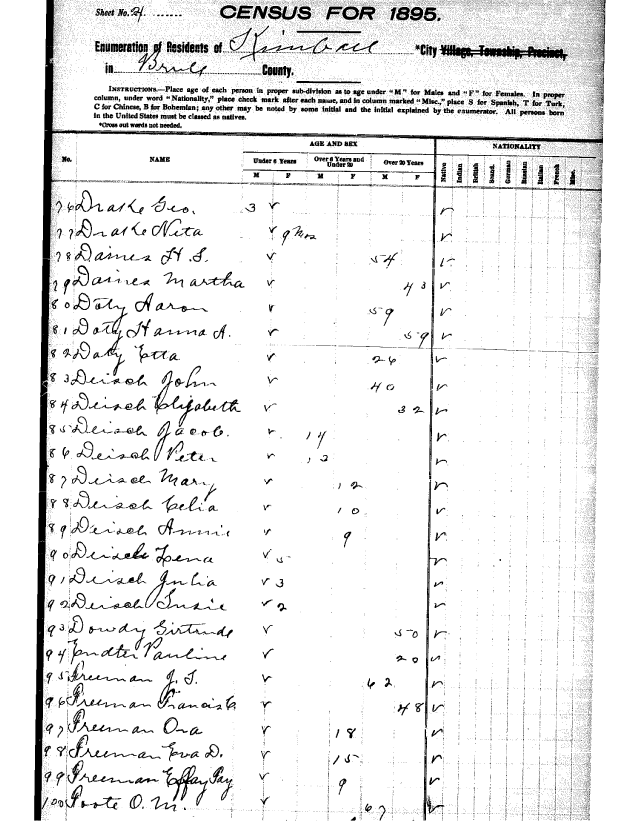 Sheet No. 24
CENSUS FOR 1895.
Enumeration of Residents of Kimball *City Village, Township, Precinct,
in Brule County.
INSTRUCTIONS.—Place age of each person in proper sub-division as to age under "M" for Males and "F" for Females. In proper
column, under word "Nationality," place check mark after each name, and in column marked "Misc.," place S for Spanish, T for Turk,
C for Chinese, B for Bohemian; any other may be noted by some initial and the initial explained by the enumerator. All persons born
in the United States must be classed as natives.
*Cross out words not needed.
AGE AND SEX NATIONALITY
No. NAME Under 6 Years Over 6 Years and Under 20 Over 20 Years Native Indian British Scand. German Russian Italian French Misc.
M F M F M F
76 Drake Geo. 3 ✓ ✓
77 Drake Nita ✓ 9 mos ✓
78 Daines H. S. ✓ 54 ✓
79 Daines Martha ✓ 43 ✓
80 Doty Aaron ✓ 59 ✓
81 Doty Hanna A. ✓ 59 ✓
82 Doty Etta ✓ 26 ✓
83 Deisch John ✓ 40 ✓
84 Deisch Elizabeth ✓ 32 ✓
85 Deisch Jacob. ✓ 14 ✓
86 Deisch Peter ✓ 13 ✓
87 Deisch Mary ✓ 12 ✓
88 Deisch Celia ✓ 10 ✓
89 Deisch Annie ✓ 9 ✓
90 Deisch Lena ✓ 5 ✓
91 Deisch Julia ✓ 3 ✓
92 Deisch Susie ✓ 2 ✓
93 Dowdy Girtrude ✓ 50 ✓
94 Endter Pauline ✓ 20 ✓
95 Freeman J. T. ✓ 62 ✓
96 Freeman Francis ✓ 48 ✓
97 Freeman Ora ✓ 18 ✓
98 Freeman Eva D. ✓ 15 ✓
99 Freeman Effay Fay ✓ 9 ✓
100 Foote O. M. ✓ 67 ✓